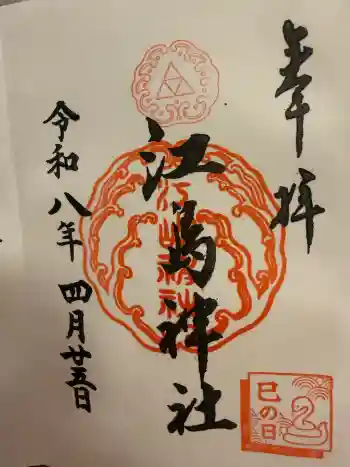 奉拝
江島神社
江島神社
令和八年 四月廿五日
巳の日